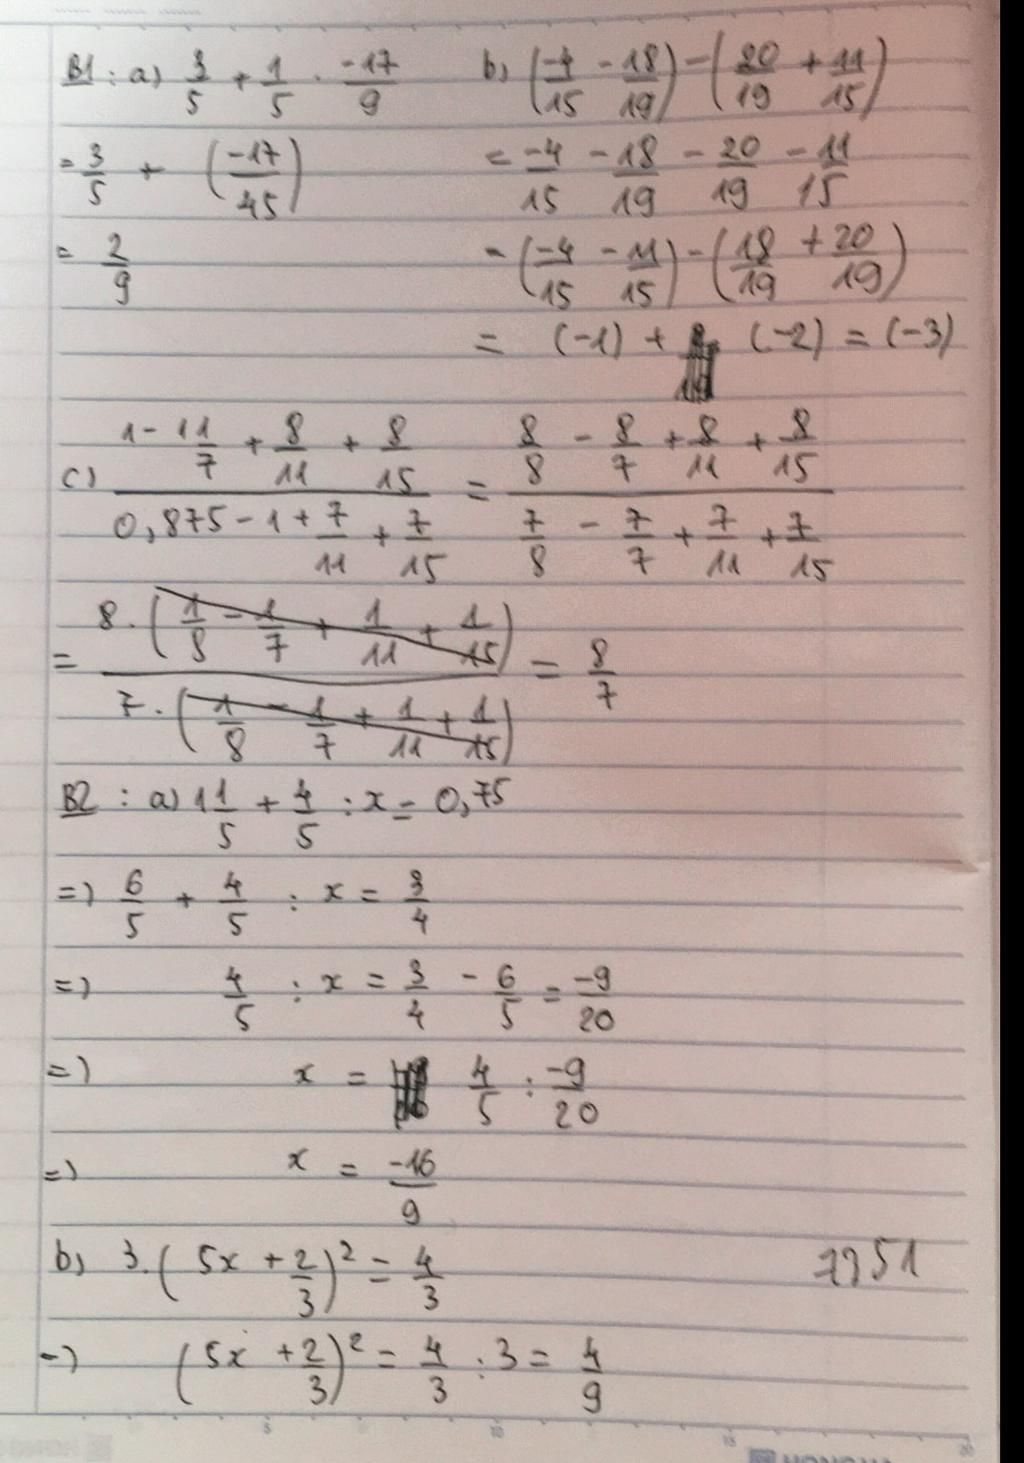 B1 : a) 3/5 + 1/5 . -17/9
= 3/5 + (-17/45)
= 2/9
b) (-4/15 - 18/19) - (20/19 + 11/15)
= -4/15 - 18/19 - 20/19 - 11/15
= (-4/15 - 11/15) - (18/19 + 20/19)
= (-1) + (-2) = (-3)
c) (1 - 1 1/7 + 8/11 + 8/15) / (0,875 - 1 + 7/11 + 7/15) = (8/8 - 8/7 + 8/11 + 8/15) / (7/8 - 7/7 + 7/11 + 7/15)
= 8.(1/8 - 1/7 + 1/11 + 1/15) / 7.(1/8 - 1/7 + 1/11 + 1/15) = 8/7
B2 : a) 1 1/5 + 4/5 : x = 0,75
=) 6/5 + 4/5 : x = 3/4
=) 4/5 : x = 3/4 - 6/5 = -9/20
=) x = 4/5 : -9/20
=) x = -16/9
b) 3.(5x + 2/3)² = 4/3
=) (5x + 2/3)² = 4/3 : 3 = 4/9
5 10 15 20